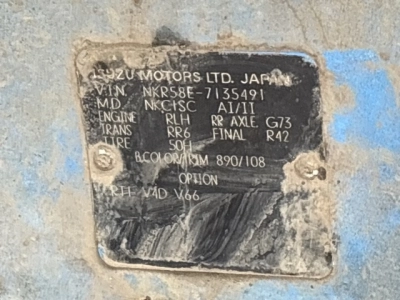 ISUZU MOTORS LTD. JAPAN
V.I.N. NKR58E-7135491
M.D. NKCISC AI/II
ENGINE RLH RR AXLE G73
TRANS RR6 FINAL R42
TIRE 50H
B.COLOR/TRIM 890/108
OPTION
V4D V66